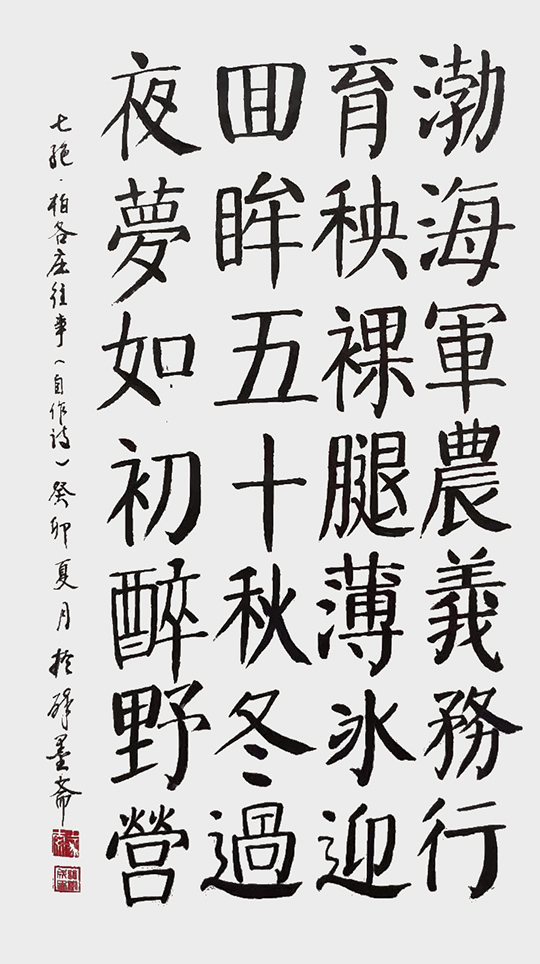 渤海軍農義務行
育秧裸腿薄冰迎
回眸五十秋冬過
夜夢如初醉野營
七絕·柏各庄往事（自作詩）癸卯夏月於 墨齋